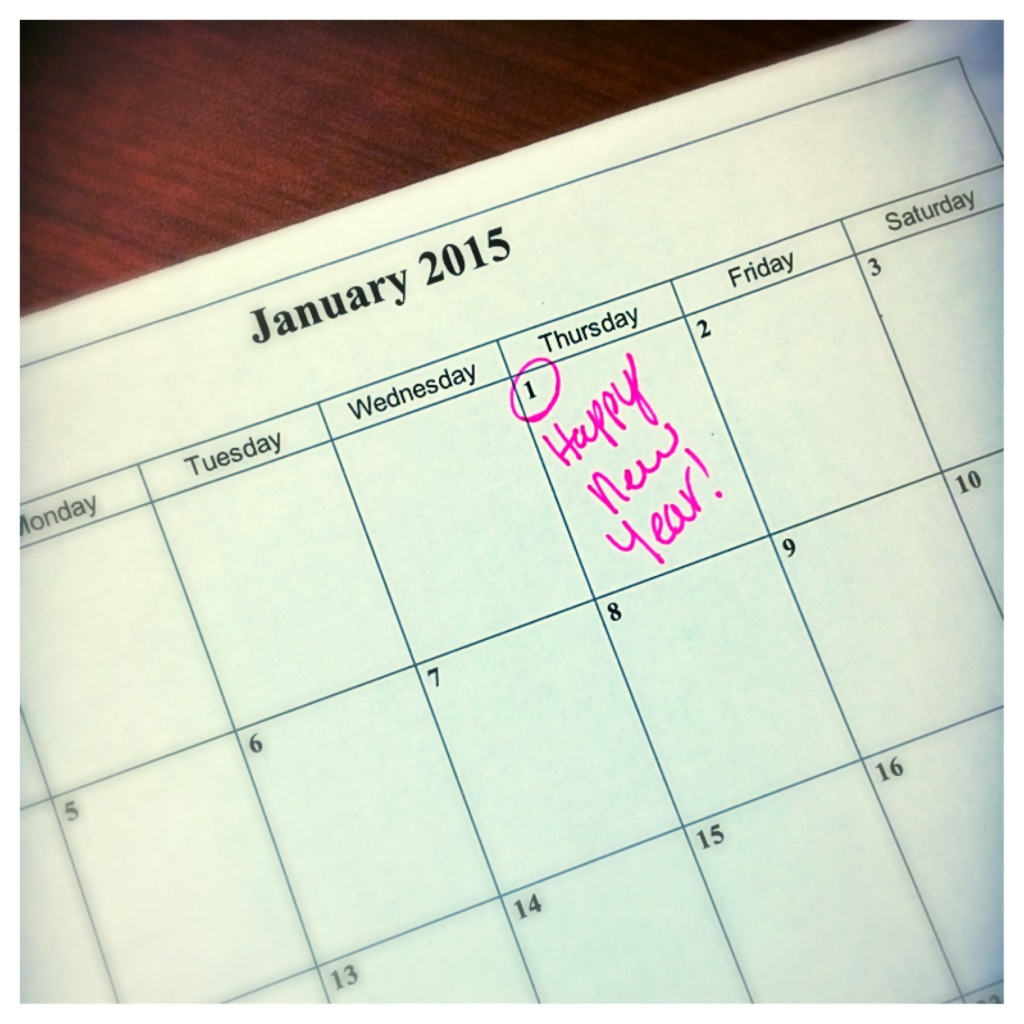 January 2015
Monday Tuesday Wednesday Thursday Friday Saturday
1 2 3
Happy
New
Year!
5 6 7 8 9 10
13 14 15 16